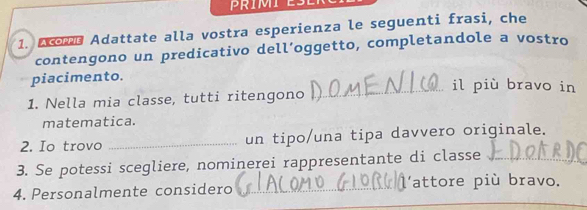 PRIMI
1. A COPPIE Adattate alla vostra esperienza le seguenti frasi, che
contengono un predicativo dell'oggetto, completandole a vostro
piacimento.
1. Nella mia classe, tutti ritengono DOMENICO il più bravo in
matematica.
2. Io trovo un tipo/una tipa davvero originale.
3. Se potessi scegliere, nominerei rappresentante di classe
4. Personalmente considero GIACOMO l'attore più bravo.